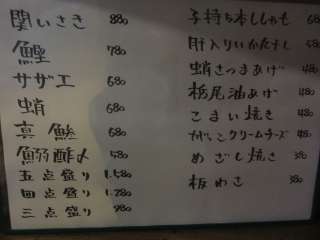 関いさき 880
鰹 780
サザエ 680
蛸 680
真鯵 680
鰯酢〆 580
五点盛り 1.580
四点盛り 1.280
三点盛り 980
子持ち本ししゃも 680
肝入りいかたたし 480
蛸さつまあげ 480
栃尾油あげ 480
こまい焼き 480
クリームチーズ 480
めざし焼き 380
板わさ 380